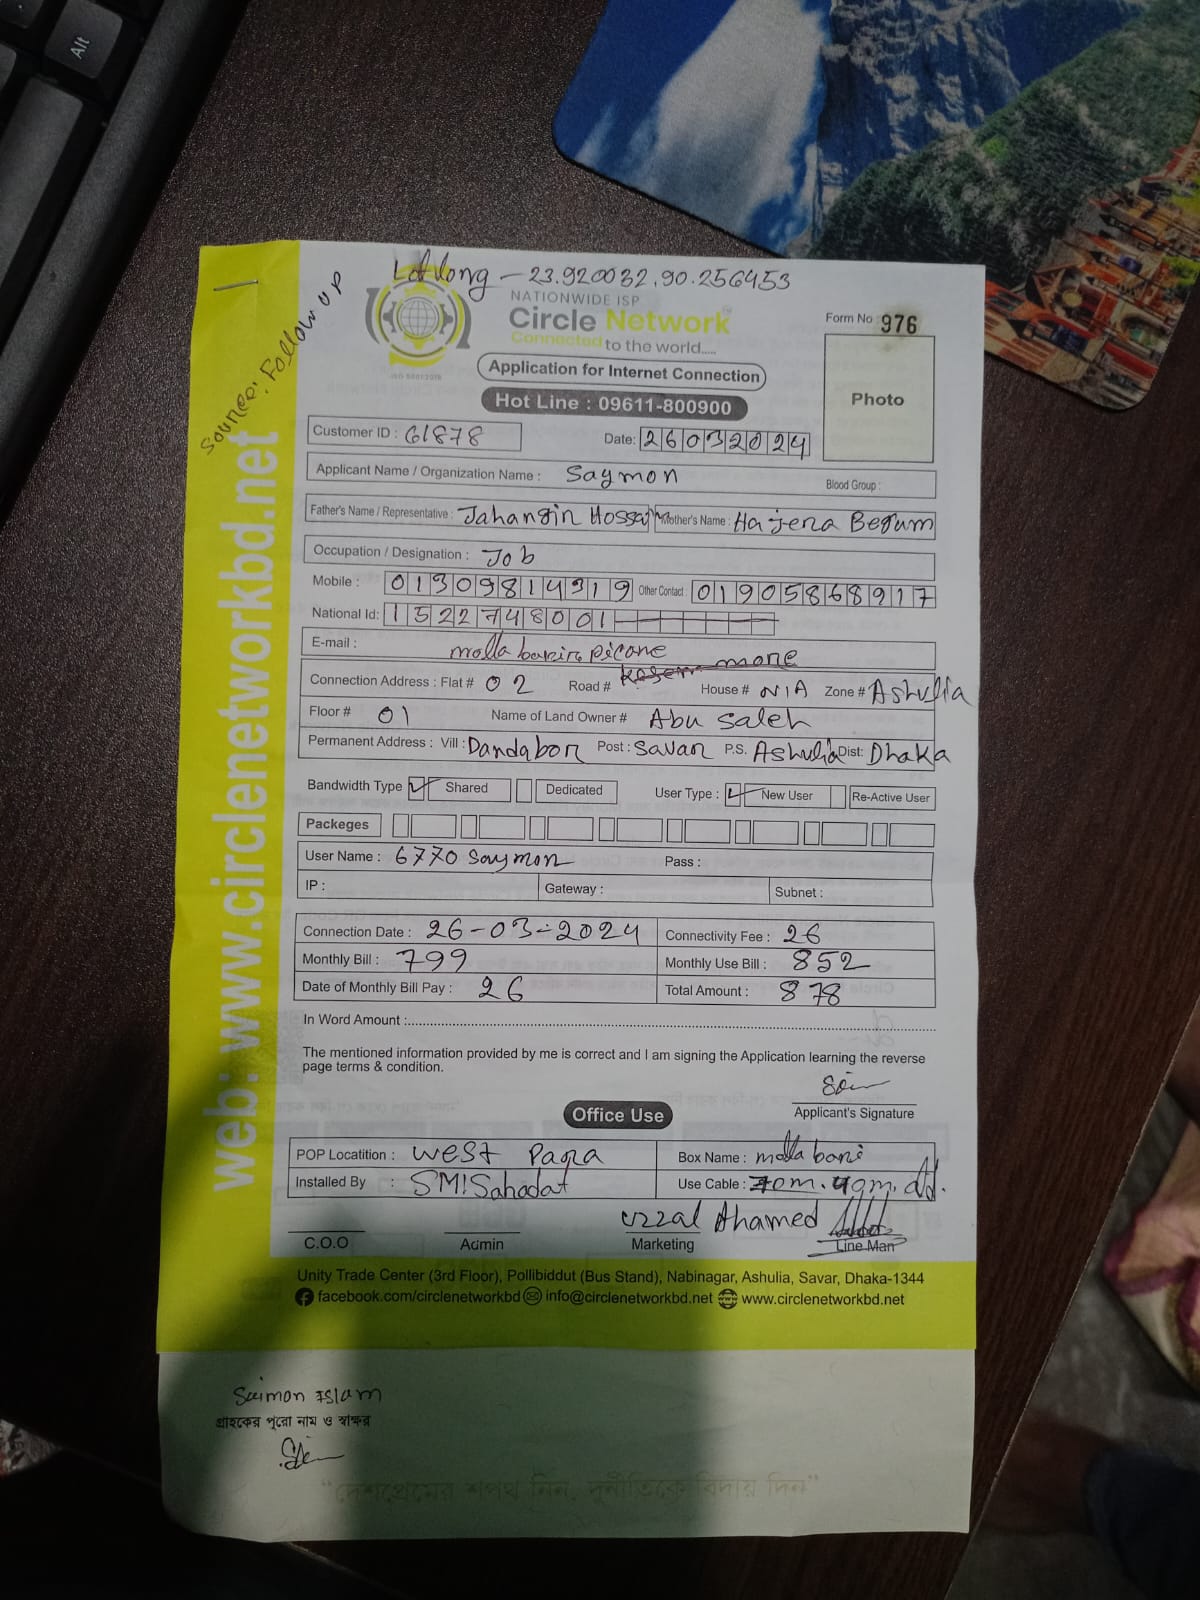 Alt
Lat Long - 23.920032, 90.256453
Source: Follow UP
NATIONWIDE ISP
Circle Network
Connected to the world.....
ISO 9001:2015
Form No 976
Application for Internet Connection
Hot Line : 09611-800900
Photo
Customer ID : 61878 Date: 26032024
Applicant Name / Organization Name : Saymon Blood Group :
Father's Name / Representative : Jahangir Hossain Mother's Name : Hajera Begum
Occupation / Designation : Job
Mobile : 01309814319 Other Contact : 01905868917
National Id: 1522748001
E-mail : molla barir picone
Connection Address : Flat # 02 Road # more House # N/A Zone # Ashulia
Floor # 01 Name of Land Owner # Abu Saleh
Permanent Address : Vill : Dandabor Post : Savar P.S. Ashulia Dist: Dhaka
Bandwidth Type Shared Dedicated User Type : New User Re-Active User
Packeges
User Name : 6770 Saymon Pass :
IP : Gateway : Subnet :
Connection Date : 26-03-2024 Connectivity Fee : 26
Monthly Bill : 799 Monthly Use Bill : 852
Date of Monthly Bill Pay : 26 Total Amount : 878
In Word Amount :
The mentioned information provided by me is correct and I am signing the Application learning the reverse
page terms & condition.
Applicant's Signature
Office Use
POP Locatition : West Para Box Name : molla bari
Installed By : SM/Sahadat Use Cable :
Uzzal Ahamed
C.O.O Admin Marketing Line Man
Unity Trade Center (3rd Floor), Pollibiddut (Bus Stand), Nabinagar, Ashulia, Savar, Dhaka-1344
facebook.com/circlenetworkbd info@circlenetworkbd.net www.circlenetworkbd.net
web: www.circlenetworkbd.net
Saimon Islam
গ্রাহকের পুরো নাম ও স্বাক্ষর
"দেশপ্রেমের শপথ নিন, দুর্নীতিকে বিদায় দিন"